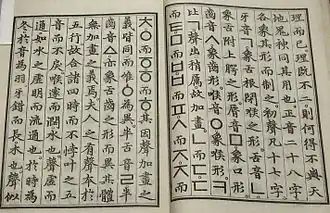 理而已理既不二則何得不與天
地鬼神同其用也正音二十八字
各象其形而制之初聲凡十七字
牙音ㄱ象舌根閉喉之形舌音ㄴ
象舌附上腭之形脣音ㅁ象口形
齒音ㅅ象齒形喉音ㅇ象喉形ㅋ
比ㄱ聲出稍厲故加畫ㄴ而ㄷㄷ
而ㅌㅁ而ㅂㅂ而ㅍㅅ而ㅈㅈ而
ㅊㅇ而ㆆㆆ而ㅎ其因聲加畫之
義皆同而唯ㆁ為異半舌音ㄹ半
齒音ㅿ亦象舌齒之形而異其體
無加畫之義焉夫人之有聲本於
五行故合諸四時而不悖叶之五
音而不戾喉邃而潤水也聲虛而
通如水之虛明而流通也於時為
冬於音為羽牙錯而長木也聲似